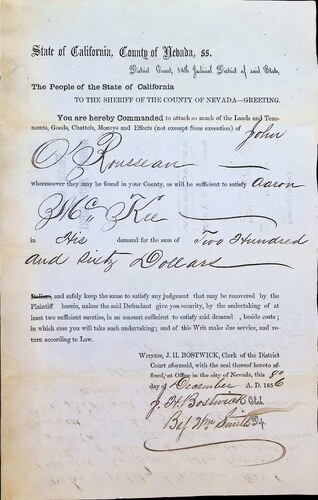 State of California, County of Nevada, ss.
District Court, 14th Judicial District of said State,
The People of the State of California
TO THE SHERIFF OF THE COUNTY OF NEVADA—GREETING.
You are hereby Commanded to attach so much of the Lands and Tene-
ments, Goods, Chattels, Moneys and Effects (not exempt from execution) of John
O' Rousseau
wheresoever they may be found in your County, as will be sufficient to satisfy Aaron
McKee
in His demand for the sum of Two Hundred
and Sixty Dollars
Dollars, and safely keep the same to satisfy any judgment that may be recovered by the
Plaintiff herein, unless the said Defendant give you security, by the undertaking of at
least two sufficient sureties, in an amount sufficient to satisfy said demand, beside costs;
in which case you will take such undertaking; and of this Writ make due service, and re-
turn according to Law.
WITNESS, J. H. BOSTWICK, Clerk of the District
Court aforesaid, with the seal thereof hereto af-
fixed, at Office in the city of Nevada, this 8th
day of December A. D. 1856
J. H. Bostwick Clerk
By Wm Smith Dp.